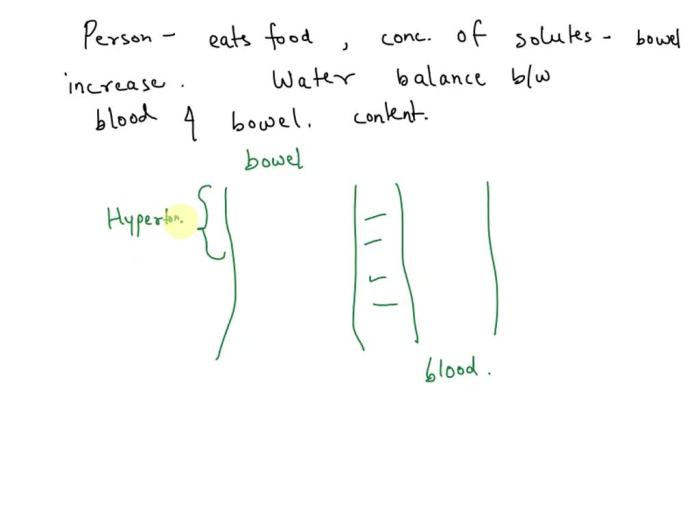 Person - eats food , conc. of solutes - bowel
increase . Water balance b/w
blood & bowel. content.
bowel
Hyperton.
blood .